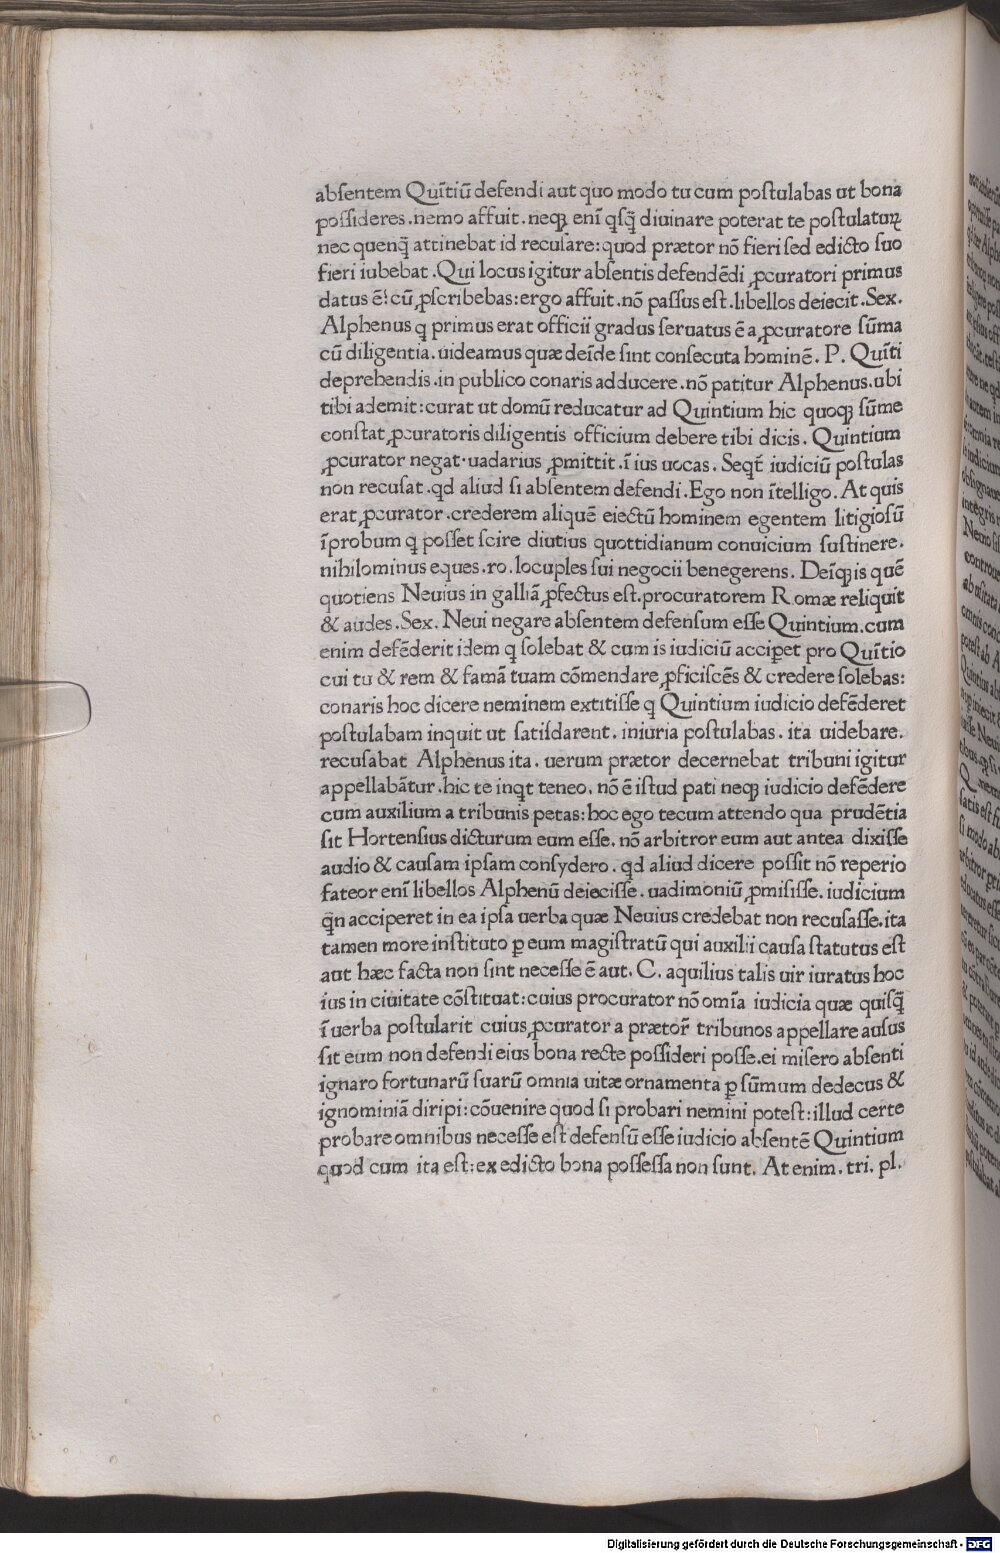 abſentem Quĩtiũ defendi aut quo modo tu cum poſtulabas ut bona
poſſideres .nemo affuit .neqꝫ enĩ qſq̃ diuinare poterat te poſtulatuꝝ
nec quenq̃ attinebat id recuſare: quod prætor nõ fieri ſed edicto ſuo
fieri iubebat .Qui locus igitur abſentis defendẽdi ꝓcuratori primus
datus ẽ: cũ ꝓſcribebas: ergo affuit .nõ paſſus eſt .libellos deiecit .Sex.
Alphenus q primus erat officii gradus ſeruatus ẽ a ꝓcuratore ſũma
cũ diligentia .uideamus quæ deĩde ſint conſecuta hominẽ. P. Quĩti
deprehendis .in publico conaris adducere .nõ patitur Alphenus .ubi
tibi ademit: curat ut domũ reducatur ad Quintium hic quoqꝫ ſũme
conſtat ꝓcuratoris diligentis officium debere tibi dicis. Quintium
ꝓcurator negat. uadarius ꝓmittit .ĩ ius uocas. Seqt̃ iudiciũ poſtulas
non recuſat .qd aliud ſi abſentem defendi .Ego non ĩtelligo. At quis
erat ꝓcurator .crederem aliquẽ eiectũ hominem egentem litigioſũ
ĩprobum q poſſet ſcire diutius quottidianum conuicium ſuſtinere.
nihilominus eques .ro. locuples ſui negocii benegerens. Deĩqꝫ is quẽ
quotiens Neuius in galliã ꝓfectus eſt .procuratorem Romæ reliquit
& audes .Sex. Neui negare abſentem defenſum eſſe Quintium .cum
enim defẽderit idem q ſolebat & cum is iudiciũ acciꝑet pro Quĩtio
cui tu & rem & famã tuam cõmendare ꝓficiſcẽs & credere ſolebas:
conaris hoc dicere neminem extitiſſe q Quintium iudicio defẽderet
poſtulabam inquit ut ſatiſdarent .iniuria poſtulabas .ita uidebare.
recuſabat Alphenus ita .uerum prætor decernebat tribuni igitur
appellabãtur .hic te inqt teneo .nõ ẽ iſtud pati neqꝫ iudicio defẽdere
cum auxilium a tribunis petas: hoc ego tecum attendo qua prudẽtia
ſit Hortenſius dicturum eum eſſe .nõ arbitror eum aut antea dixiſſe
audio & cauſam ipſam conſydero .qd aliud dicere poſſit nõ reperio
fateor enĩ libellos Alphenũ deieciſſe .uadimoniũ ꝓmiſiſſe .iudicium
q̃n acciperet in ea ipſa uerba quæ Neuius credebat non recuſaſſe .ita
tamen more inſtituto ꝑ eum magiſtratũ qui auxilii cauſa ſtatutus eſt
aut hæc facta non ſint neceſſe ẽ aut. C. aquilius talis uir iuratus hoc
ius in ciuitate cõſtituat: cuius procurator nõ omĩa iudicia quæ quiſq̃
ĩ uerba poſtularit cuius ꝓcurator a prætor̃ tribunos appellare auſus
ſit eum non defendi eius bona recte poſſideri poſſe .ei miſero abſenti
ignaro fortunarũ ſuarũ omnia uitæ ornamenta ꝑ ſũmum dedecus &
ignominiã diripi: cõuenire quod ſi probari nemini poteſt: illud certe
probare omnibus neceſſe eſt defenſũ eſſe iudicio abſentẽ Quintium
quod cum ita eſt: ex edicto bona poſſeſſa non ſunt. At enim. tri. pl.
Digitalisierung gefördert durch die Deutsche Forschungsgemeinschaft - DFG